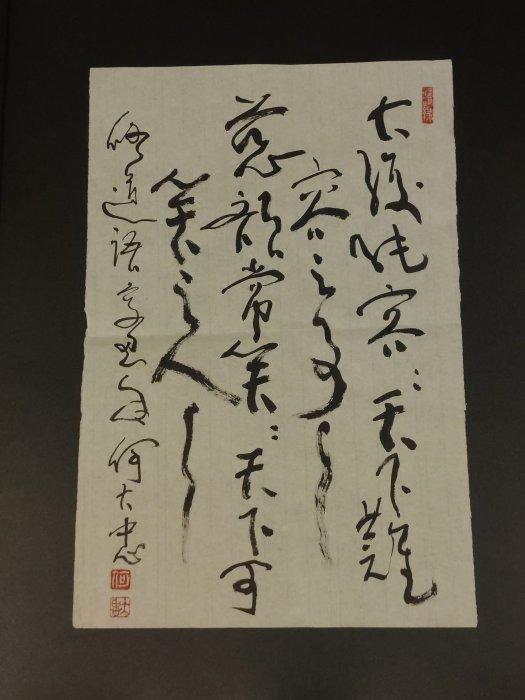 大度能容〻天下難
容之事
慈顏常笑〻天下可
笑之人
道語 何大忠